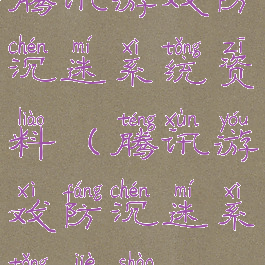 腾讯游戏防
chén mí xì tǒng zī
沉迷系统资
liào téng xùn yóu
料（腾讯游
xì fáng chén mí xì
戏防沉迷系
tǒng jiě shào